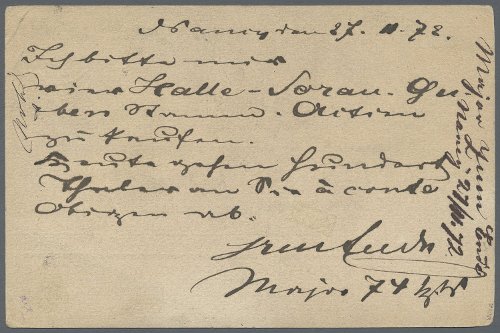 Nancy den 27. 11. 72.
Ich bitte mir
vier Halle-Sorau-Gu-
bers Stamm-Actien
zu kaufen.
Heute gehen hundert
Thaler an Sie à conto
Obigen ab.
Major 74
Major
Nancy 27/11. 72